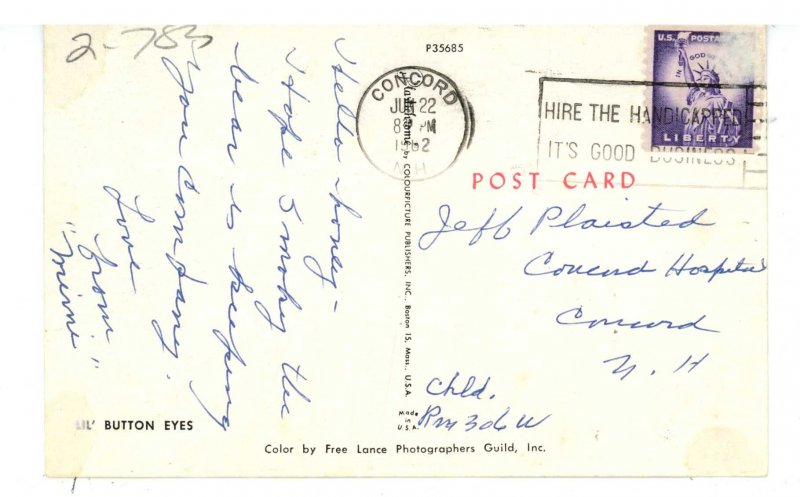 2-783
P35685
Hello honey-
Hope Smokey the
bear is keeping
you company.
Love
from
"Mimi"
LIL' BUTTON EYES
Plastichrome by COLOURPICTURE PUBLISHERS, INC., Boston 15, Mass., U.S.A.
CONCORD
22
PM
HIRE THE HANDICAPPED
IT'S GOOD BUSINESS
U.S. POSTA
IN GOD
LIBERTY
POST CARD
Jeff Plaisted
Concord Hospital
Concord
N. H
Chld.
Rm 36 W
Made
in
U.S.A.
Color by Free Lance Photographers Guild, Inc.